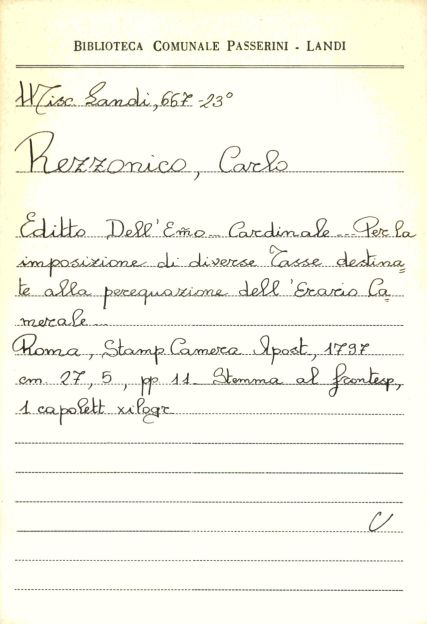 BIBLIOTECA COMUNALE PASSERINI - LANDI
Misc. Landi, 667-23°
Rezzonico, Carlo
Editto Dell'Emo... Cardinale ... Per la
imposizione di diverse Tasse destina=
te alla perequazione dell'Erario Ca=
merale...
Roma, Stamp. Camera Apost., 1797
cm. 27,5, pp. 11. Stemma al frontesp.,
1 capolett. xilogr.
U